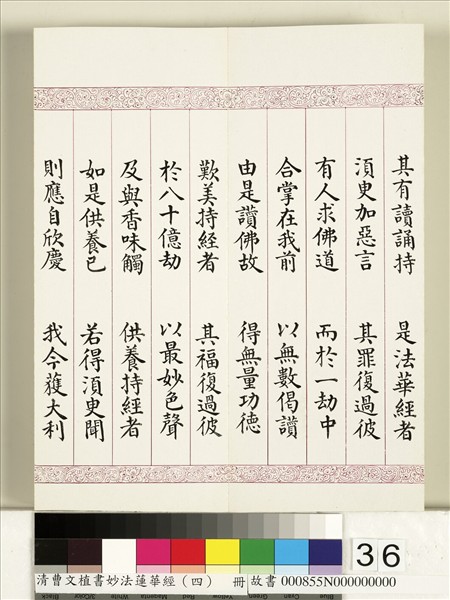 其有讀誦持　是法華經者
湏臾加惡言　其罪復過彼
有人求佛道　而於一劫中
合掌在我前　以無數偈讚
由是讚佛故　得無量功德
歎美持經者　其福復過彼
於八十億劫　以最妙色聲
及與香味觸　供養持經者
如是供養已　若得湏臾聞
則應自欣慶　我今獲大利
36
清曹文植書妙法蓮華經（四）　冊 故書 000855N000000000